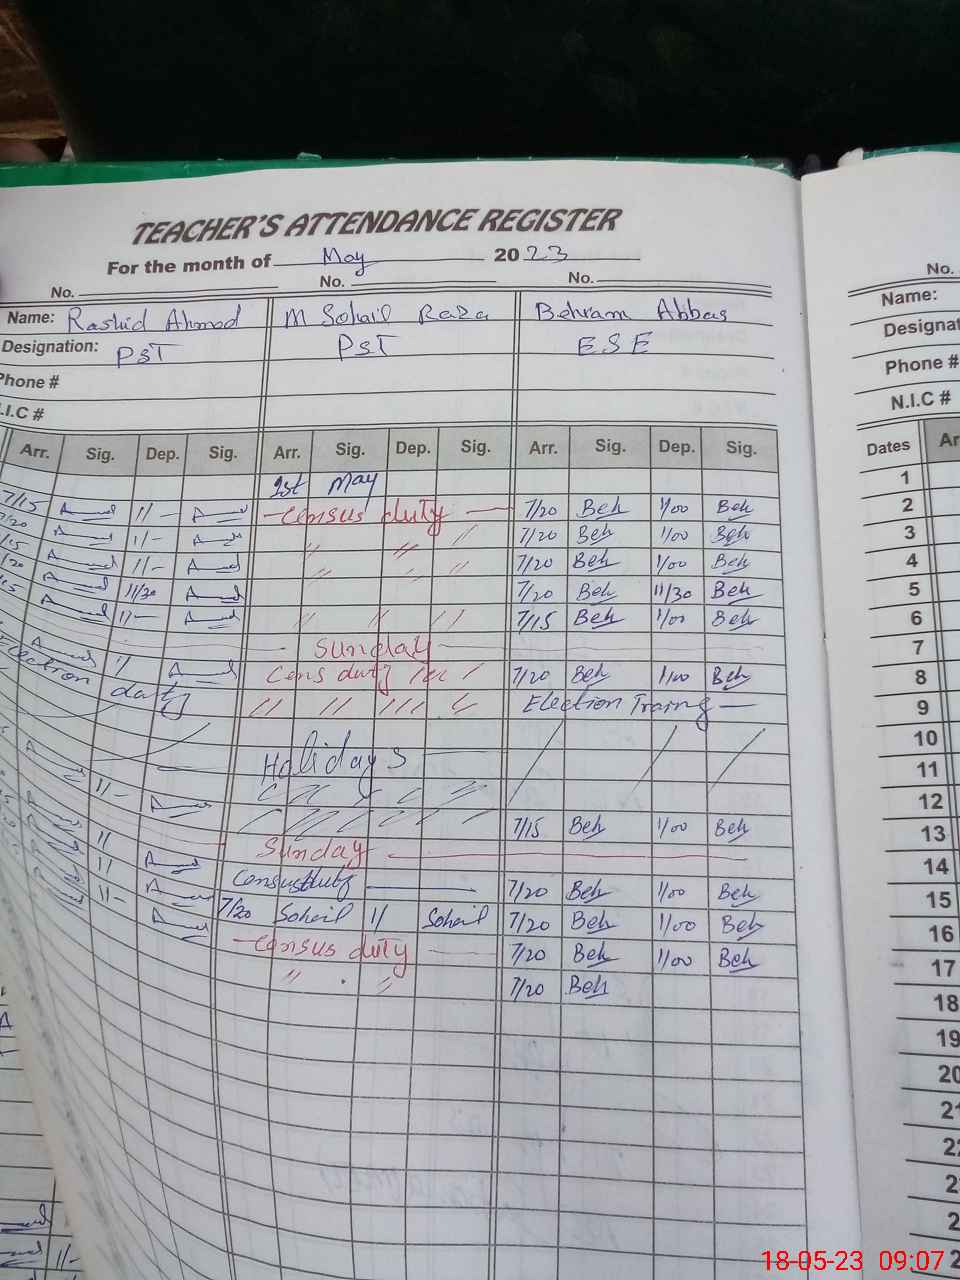 TEACHER'S ATTENDANCE REGISTER
For the month of May 2023
No. No. No.
Name: Rashid Ahmad M Sohail Raza Behram Abbas
Designation: PST PST E.S.E
Phone #
N.I.C #
Arr. Sig. Dep. Sig. Arr. Sig. Dep. Sig. Arr. Sig. Dep. Sig.
1st May
7/15 11/- Census duty 7/20 Beh 1/00 Beh
7/20 11/- " " " 7/20 Beh 1/00 Beh
11/- " " 7/20 Beh 1/00 Beh
11/30 7/20 Beh 11/30 Beh
11/- " " " 7/15 Beh 1/00 Beh
Sunday
11 Cens duty 7/20 Beh 1/00 Beh
Election duty " " " " Election Traing
Holidays
11/-
7/15 Beh 1/00 Beh
11 Sunday
11 Census duty 7/20 Beh 1/00 Beh
11- 7/20 Sohail 11 Sohail 7/20 Beh 1/00 Beh
Census duty 7/20 Beh 1/00 Beh
" " 7/20 Beh
No.
Name:
Designat
Phone #
N.I.C #
Dates Ar
1
2
3
4
5
6
7
8
9
10
11
12
13
14
15
16
17
18
19
20
21
22
18-05-23 09:07